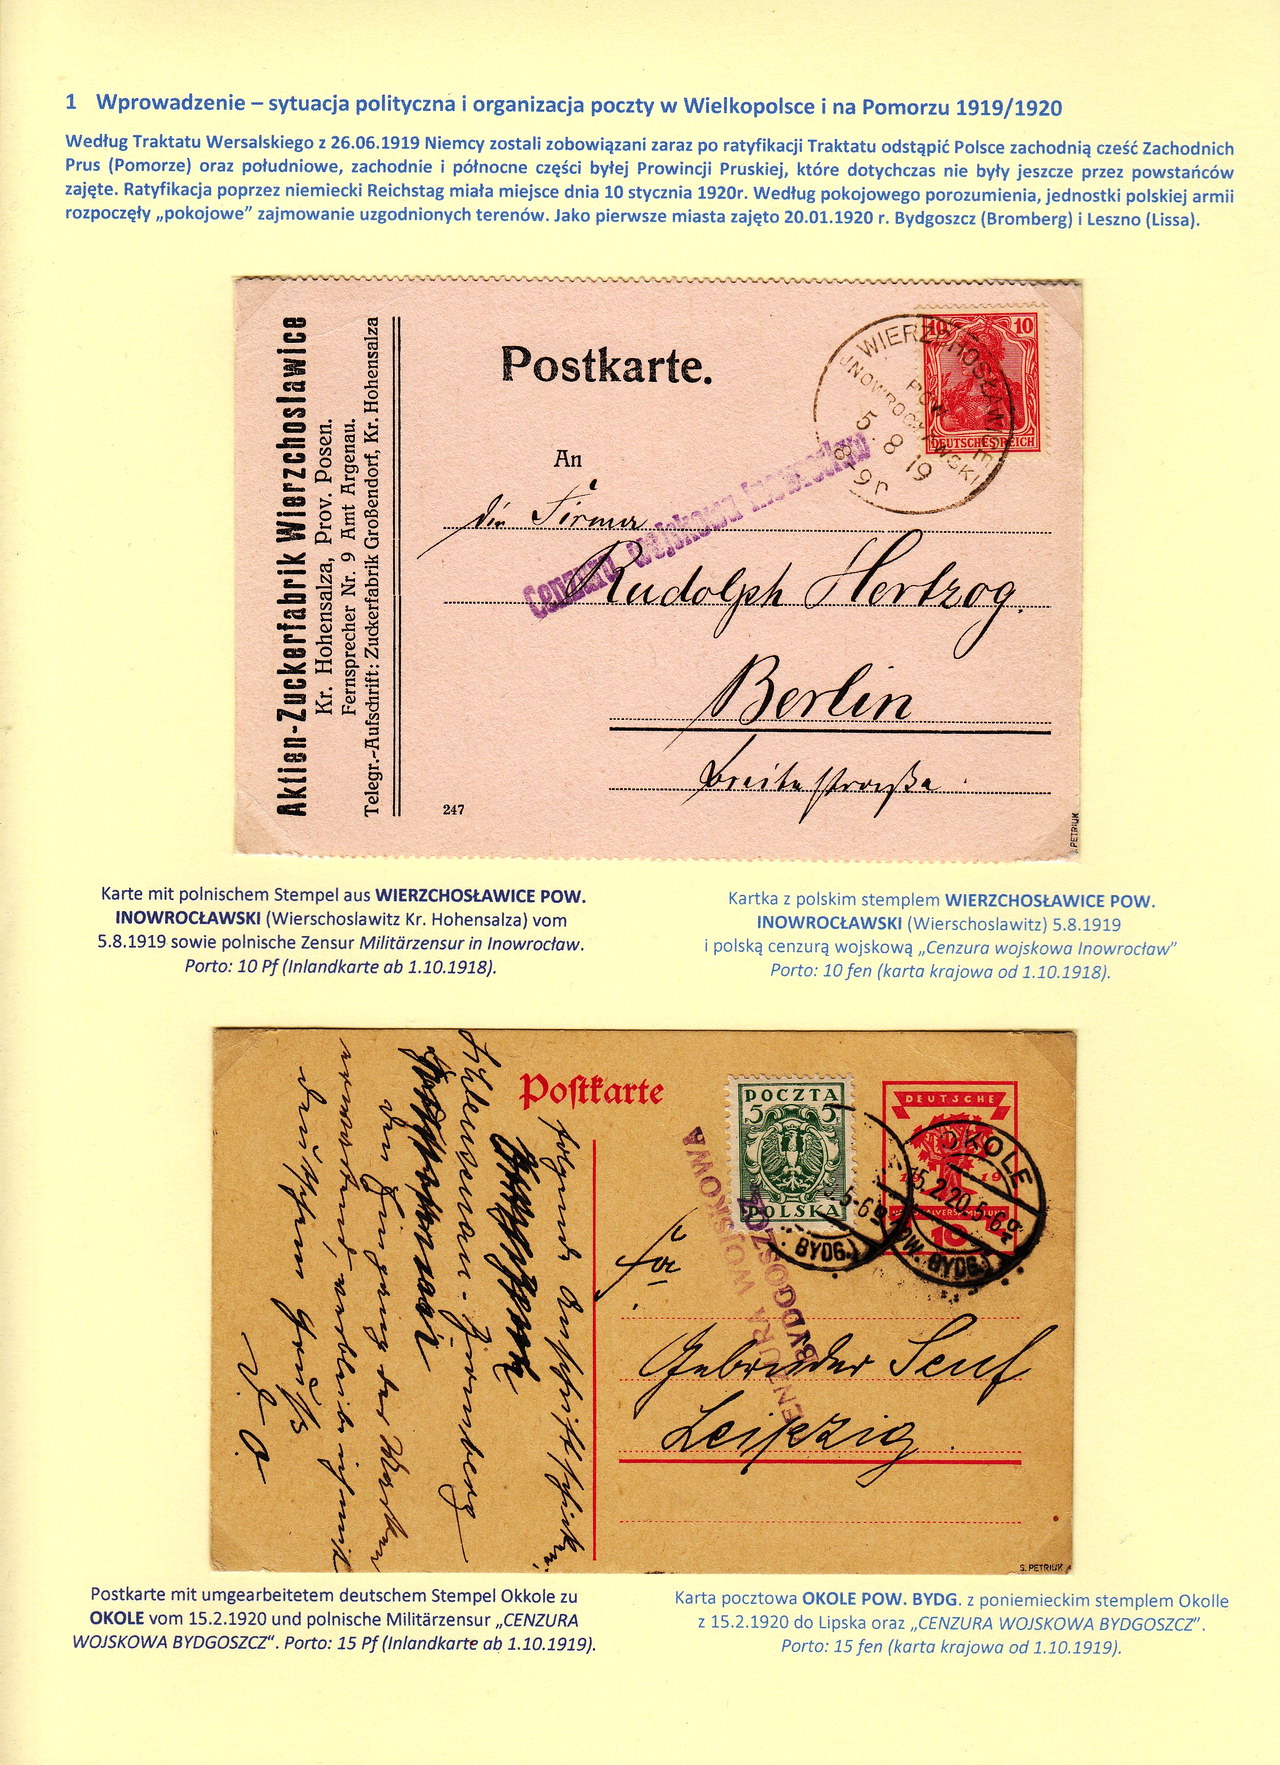 1 Wprowadzenie – sytuacja polityczna i organizacja poczty w Wielkopolsce i na Pomorzu 1919/1920
Według Traktatu Wersalskiego z 26.06.1919 Niemcy zostali zobowiązani zaraz po ratyfikacji Traktatu odstąpić Polsce zachodnią cześć Zachodnich
Prus (Pomorze) oraz południowe, zachodnie i północne części byłej Prowincji Pruskiej, które dotychczas nie były jeszcze przez powstańców
zajęte. Ratyfikacja poprzez niemiecki Reichstag miała miejsce dnia 10 stycznia 1920r. Według pokojowego porozumienia, jednostki polskiej armii
rozpoczęły „pokojowe” zajmowanie uzgodnionych terenów. Jako pierwsze miasta zajęto 20.01.1920 r. Bydgoszcz (Bromberg) i Leszno (Lissa).
Aktien-Zuckerfabrik Wierzchoslawice
Kr. Hohensalza, Prov. Posen.
Fernsprecher Nr. 9 Amt Argenau.
Telegr.-Aufschrift: Zuckerfabrik Großendorf, Kr. Hohensalza
Postkarte.
10 10
DEUTSCHES REICH
WIERZCHOSŁAWICE
POW.
INOWROCŁAWSKI
5. 8 19
8-9 n
An
die Firma
Cenzura wojskowa Inowrocław
Rudolph Hertzog.
Berlin
Breitestraße.
247
PETRIUK
Karte mit polnischem Stempel aus WIERZCHOSŁAWICE POW.
INOWROCŁAWSKI (Wierschoslawitz Kr. Hohensalza) vom
5.8.1919 sowie polnische Zensur Militärzensur in Inowrocław.
Porto: 10 Pf (Inlandkarte ab 1.10.1918).
Kartka z polskim stemplem WIERZCHOSŁAWICE POW.
INOWROCŁAWSKI (Wierschoslawitz) 5.8.1919
i polską cenzurą wojskową „Cenzura wojskowa Inowrocław”
Porto: 10 fen (karta krajowa od 1.10.1918).
Postkarte
POCZTA
5 5
POLSKA
DEUTSCHE
19 19
NATIONALVERSAMMLUNG
10
OKOLE
15.2.20.5-6
(POW. BYDG.)
5-6
BYDG.)
CENZURA WOJSKOWA
BYDGOSZCZ
Fa
Gebrüder Senf
Leipzig.
den Eingang der Marken
S. PETRIUK
Postkarte mit umgearbeitetem deutschem Stempel Okkole zu
OKOLE vom 15.2.1920 und polnische Militärzensur „CENZURA
WOJSKOWA BYDGOSZCZ“. Porto: 15 Pf (Inlandkarte ab 1.10.1919).
Karta pocztowa OKOLE POW. BYDG. z poniemieckim stemplem Okolle
z 15.2.1920 do Lipska oraz „CENZURA WOJSKOWA BYDGOSZCZ”.
Porto: 15 fen (karta krajowa od 1.10.1919).